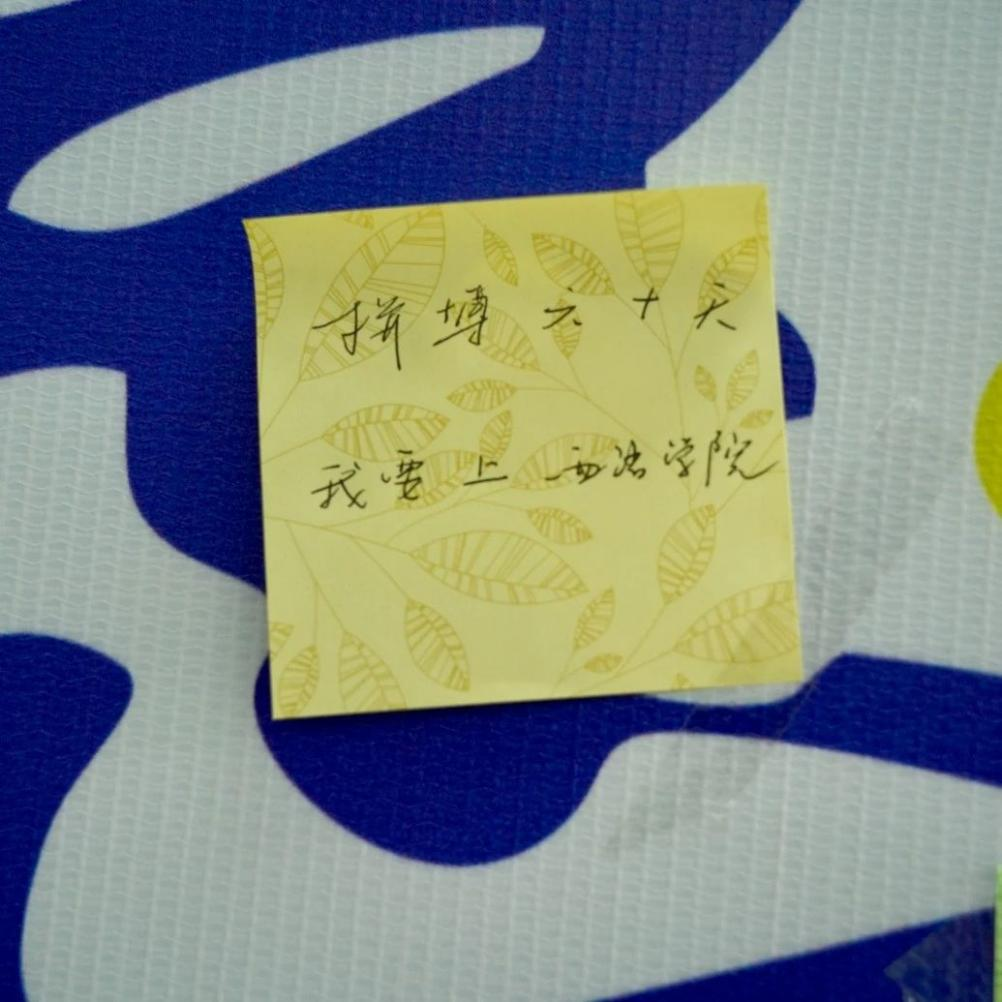 拼搏六十天
我要上西法学院